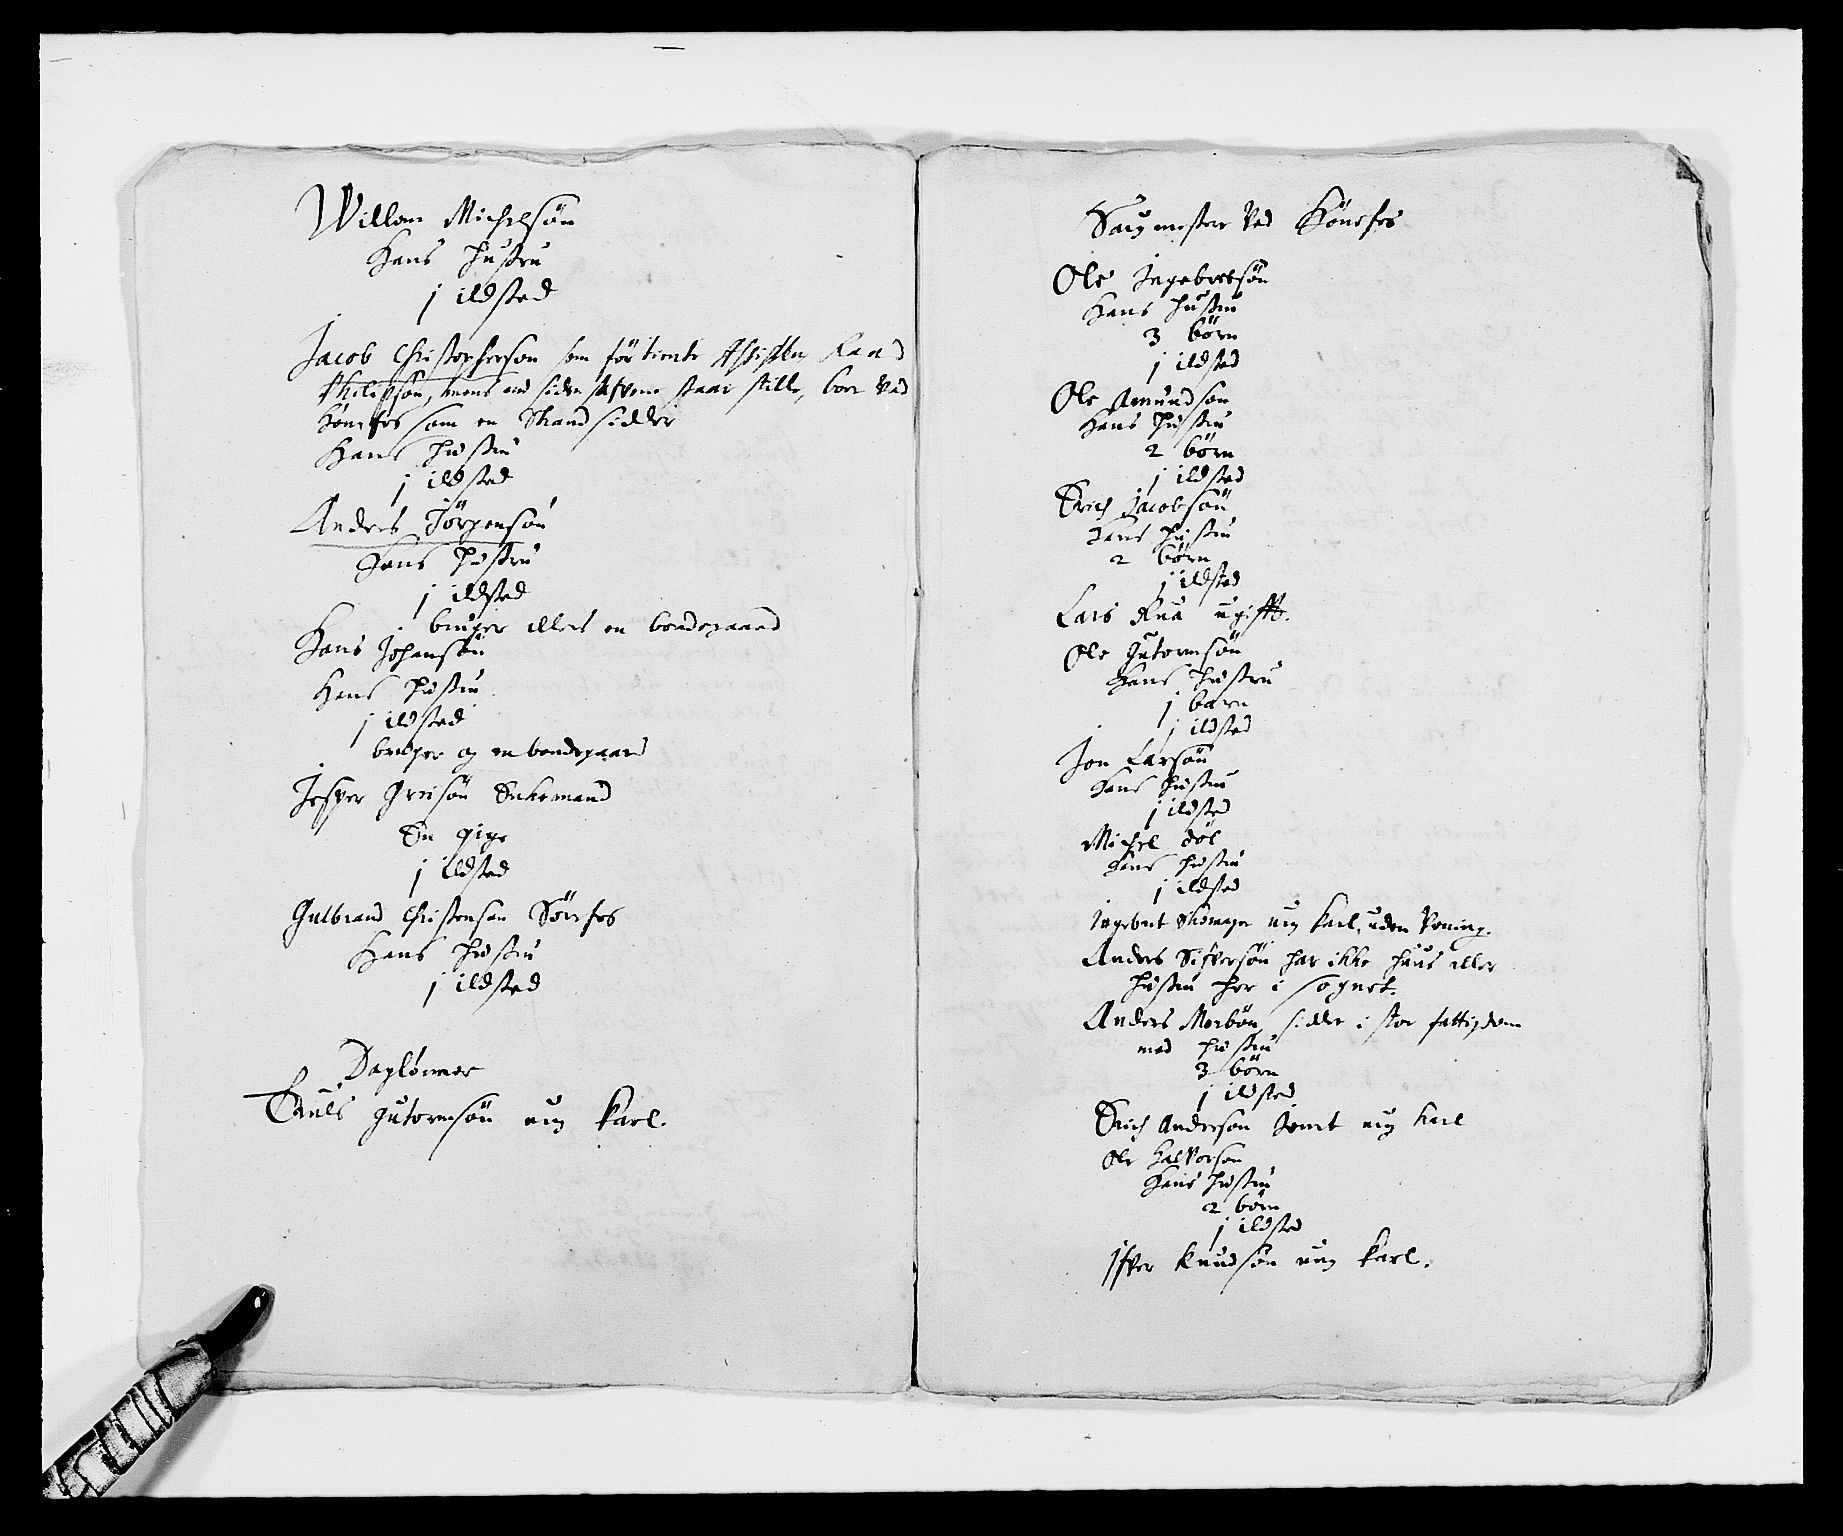 Willom Michelsøn
Hans hustru
j ildsted
Jacob Christophersøn som før tiente Assistentz Raad
Philipsøn, mens nu siden staar stille, boer ved
Hönefos som en Strandsidder
Hans hustru
j ildsted
Anders Jörgensøn
Hans hustru
j ildsted
bruger ellers en bondegaard
Hans Johansøn
Hans hustru
j ildsted
bruger og en bondegaard
Jesper Gresøn Enkemand
En pige
j ildsted
Gulbrand Christensøn Hönefos
Hans hustru
j ildsted
Daglönner
Truls Gutormsøn ung karl.
Saugmester ved Hönefos
Ole Ingebretsøn
Hans hustru
3 börn
j ildsted
Ole Amundsøn
Hans hustru
2 börn
j ildsted
Erich Jacobsøn
Hans hustru
2 börn
j ildsted
Lars Rua ugifft.
Ole Gutormsøn
Hans hustru
j barn
j ildsted
Jon Larsøn
Hans hustru
j ildsted
Michel Döl
Hans hustru
j ildsted
Ingebret Skomager ung karl, uden Vaaning.
Anders Siffuersøn har ikke huus eller
hustru her i Sognet.
Anders Morbön, sidder i stor fattigdom
med hustru
3 börn
j ildsted
Erich Andersøn ung karl
Ole Halvorsøn
Hans hustru
2 börn
j ildsted
Iffver Knudsøn ung karl.